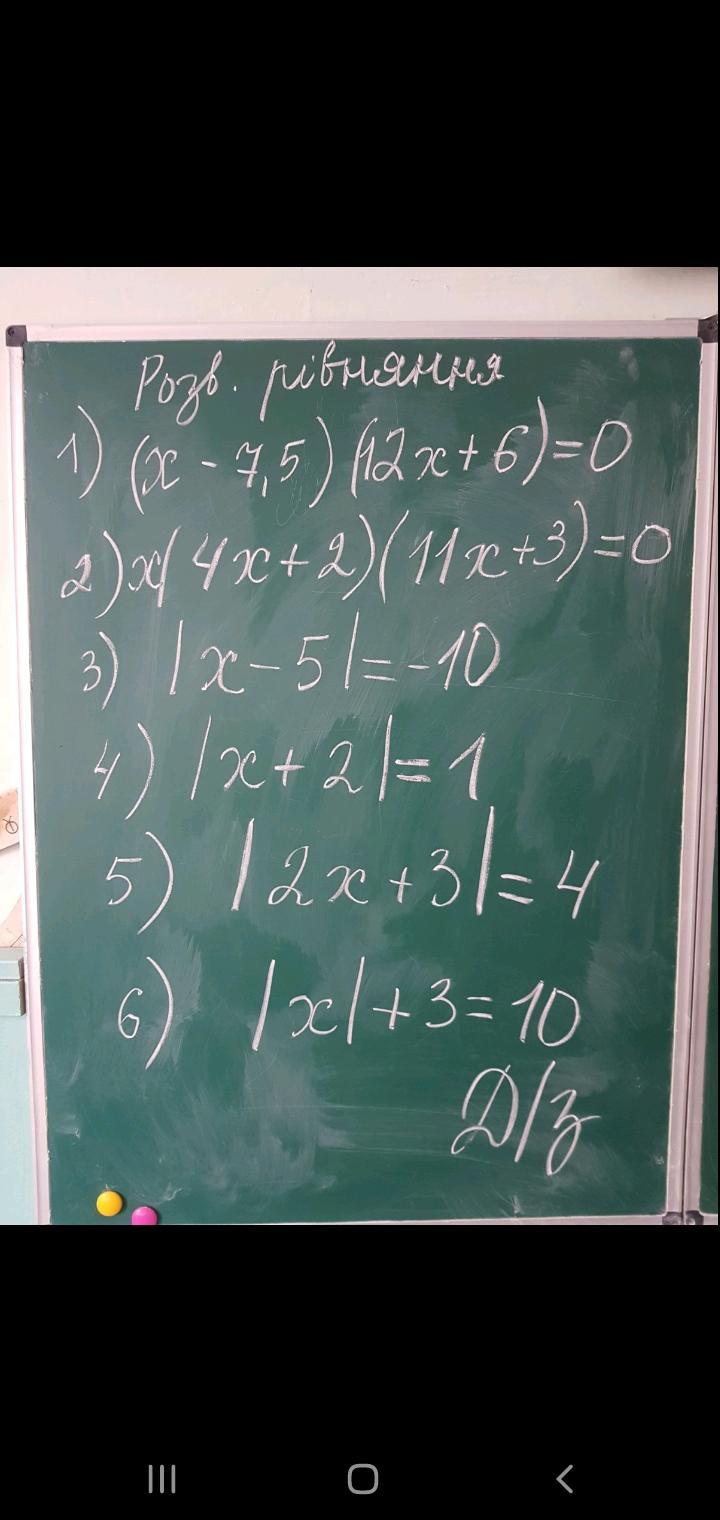 Розв. рівняння
1) (x - 7,5) (12x + 6) = 0
2) x(4x + 2)(11x + 3) = 0
3) |x - 5| = -10
4) |x + 2| = 1
5) |2x + 3| = 4
6) |x| + 3 = 10
Д/з